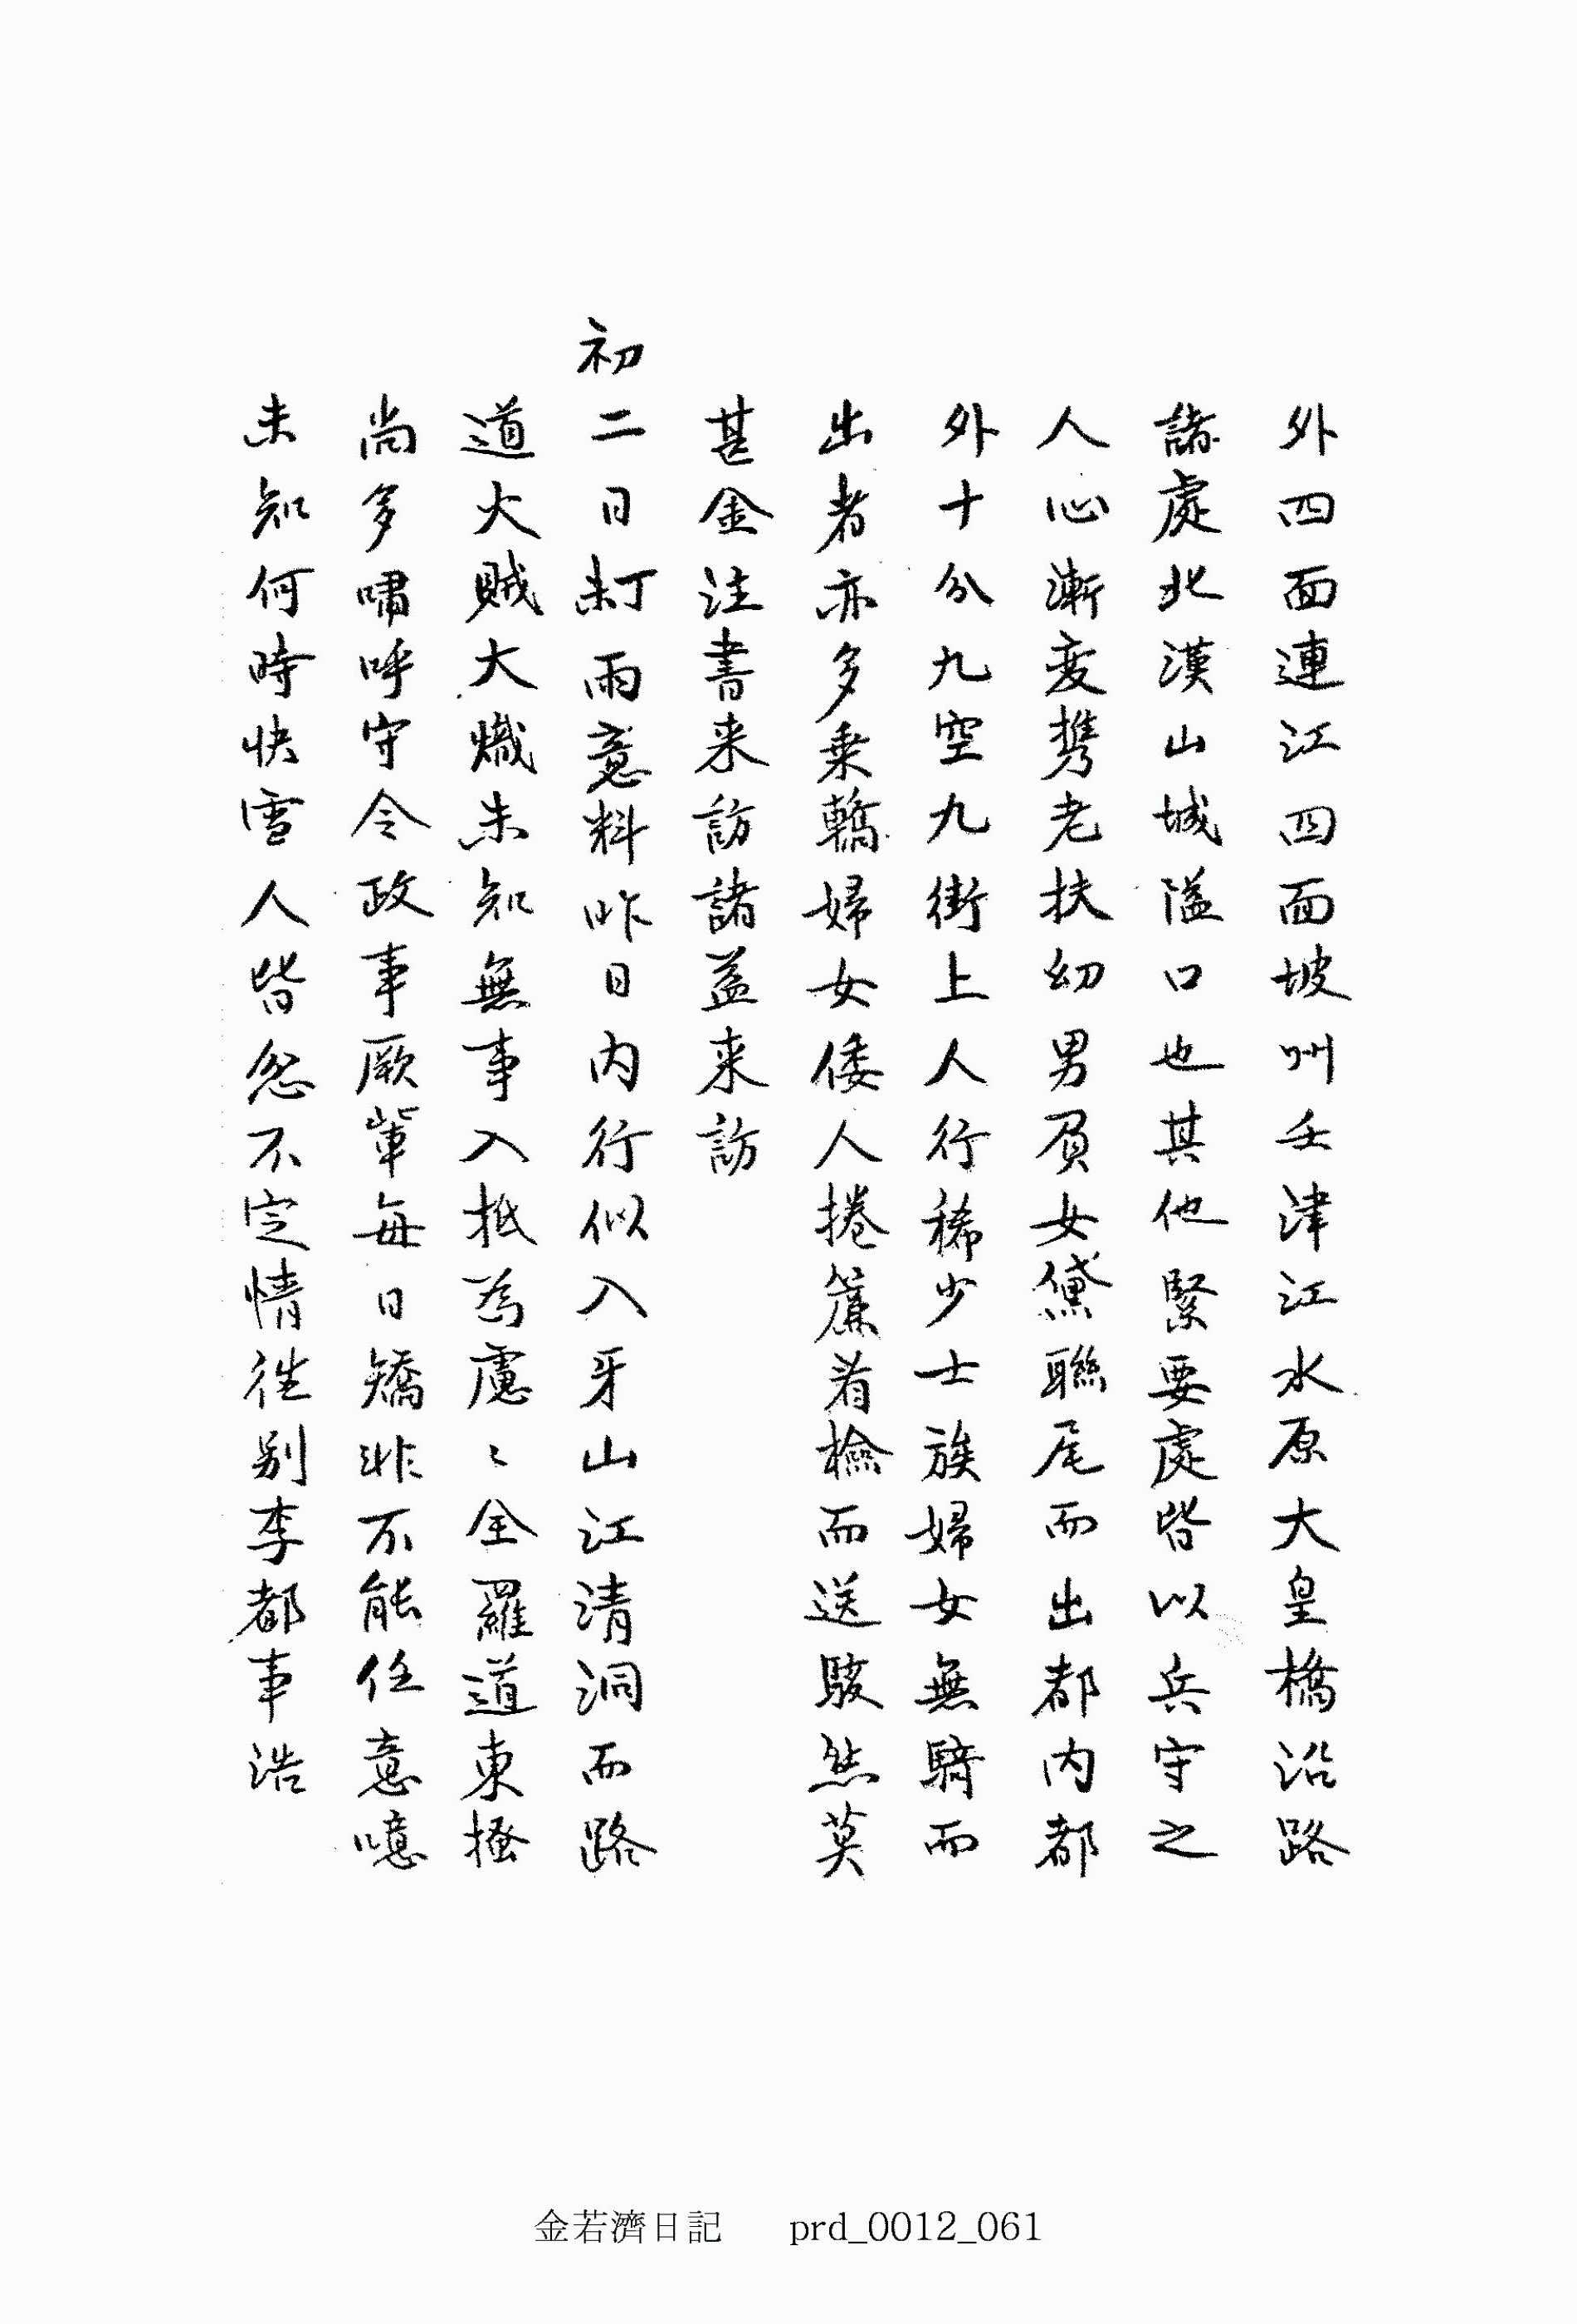 外四面連江四面坡州壬津江水原大皇橋沿路
諸處北漢山城隘口也其他緊要處皆以兵守之
人心漸変携老扶幼男負女黛聯尾而出都内都
外十分九空九街上人行稀少士族婦女無騎而
出者亦多乗轎婦女倭人捲簾着檢而送駭然莫
甚金注書来訪諸益来訪
初二日丁未雨意料昨日内行似入牙山江清洞而路
道火賊大熾未知無事入抵為慮〻全羅道東擾
尚多嘯呼守令政事厥輩每日矯非不能任意噫
未知何時快雪人皆忽不定情徃别李都事浩